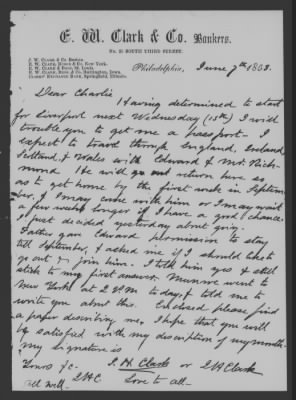 E. W. Clark & Co. Bankers.
No. 35 SOUTH THIRD STREET.
E. W. CLARK & CO. Boston.
E. W. CLARK, DODGE & CO. New York.
E. W. CLARK & BROS. St. Louis.
E. W. CLARK, BROS. & CO. Burlington, Iowa.
CLARKS' EXCHANGE BANK, Springfield, Illinois.
Philadelphia, June 7th
Dear Charlie
Having determined to start
for Liverpool next Wednesday (15th) I will
trouble you to get me a passport - I
expect to travel through England, Ireland,
Scotland, & Wales with Edward & Mr. Rich-
mond He will return here so
as to get home by the first week in Septem-
ber, I may come with him or I may wait
a few weeks longer if I have a good chance.
I just decided yesterday about going.
Father gave Edward permission to stay
till September, & asked me if I should like to
go out & join him. I told him yes & still
stick to my first answer. went to
New York at 2 P.M. to day, & told me to
write you about this. Enclosed please find
a paper describing me. I hope that you will
be satisfied with my description of my mouth-
my signature is
I. H. Clark or I H Clark
Yours &c.
I H C. Love to all-
All well-